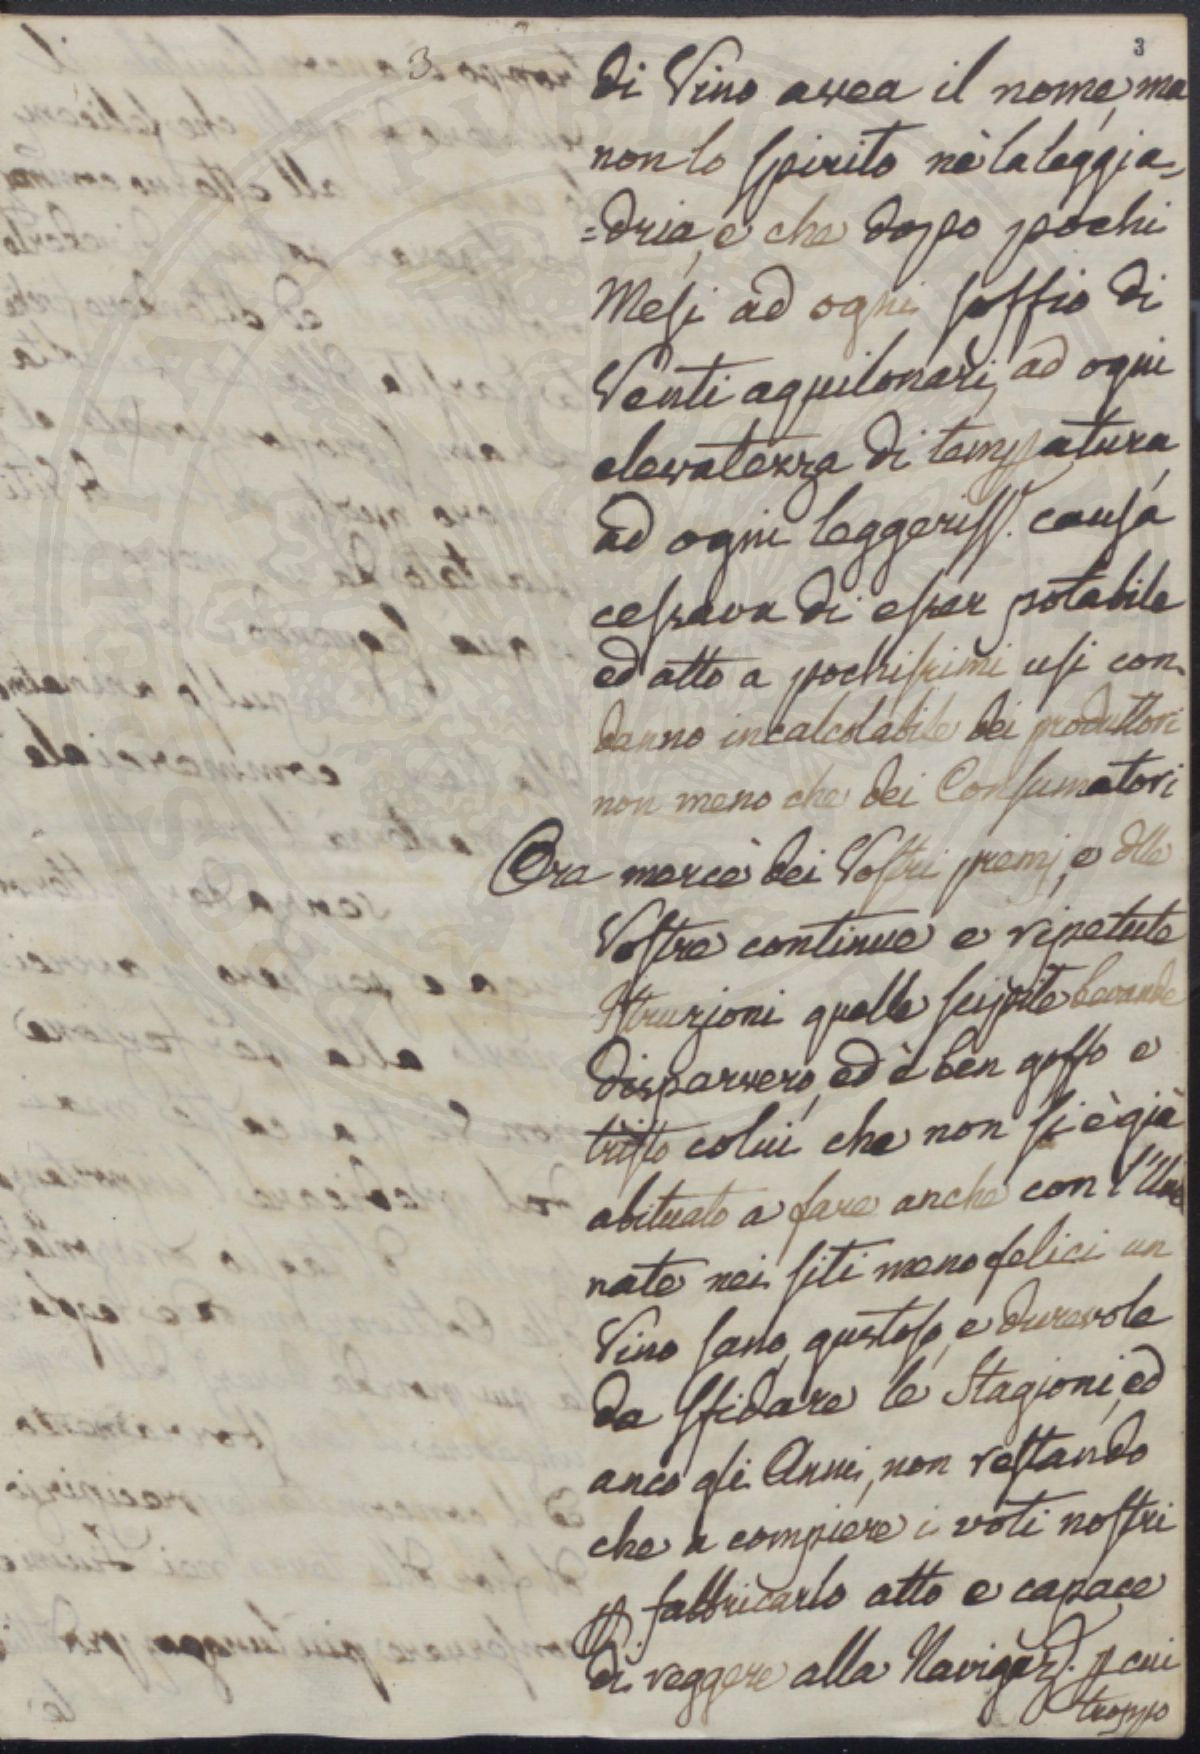 3
3
di Vino avea il nome, ma
non lo spirito nè la leggia=
=dria, e che dopo pochi
Mesi ad ogni soffio di
Venti aquilonarj, ad ogni
elevatezza di tempatura
ad ogni leggeriss. causa
cessava di esser potabile
ed atto a pochissimi usi con
danno incalcolabile dei produttori
non meno che dei Consumatori
Ora mercè dei Vostri premj, e dlle
Vostre continue e ripetute
Istruzioni quelle scipite bevande
disparvero, ed è ben goffo e
tristo colui che non si è già
abituato a fare anche con l'Uve
nate nei siti meno felici un
Vino sano, gustoso, e durevole
da sfidare le Stagioni, ed
anco gli Anni, non restando
che a compiere i voti nostri
p fabbricarlo atto e capace
di reggere alla Navigaz. p cui
troppo